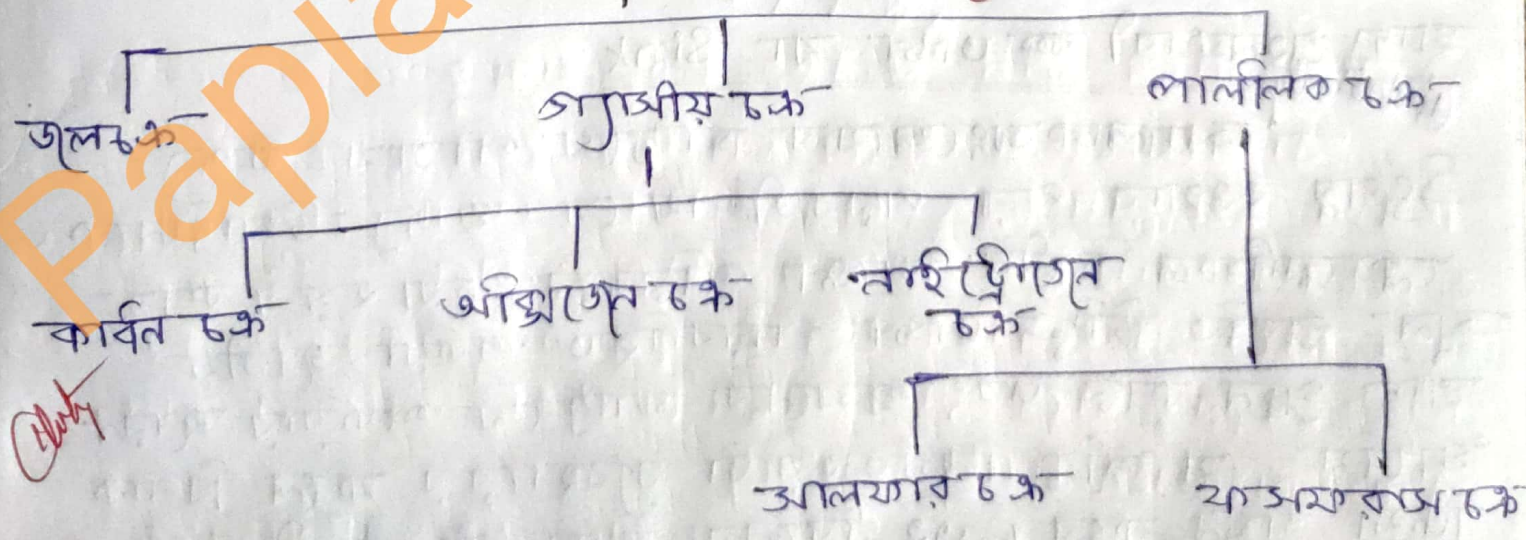 জলচক্র
গ্যাসীয় চক্র
পাললিক চক্র
কার্বন চক্র
অক্সিজেন চক্র
নাইট্রোজেন
চক্র
সালফার চক্র
ফসফরাস চক্র
Papla